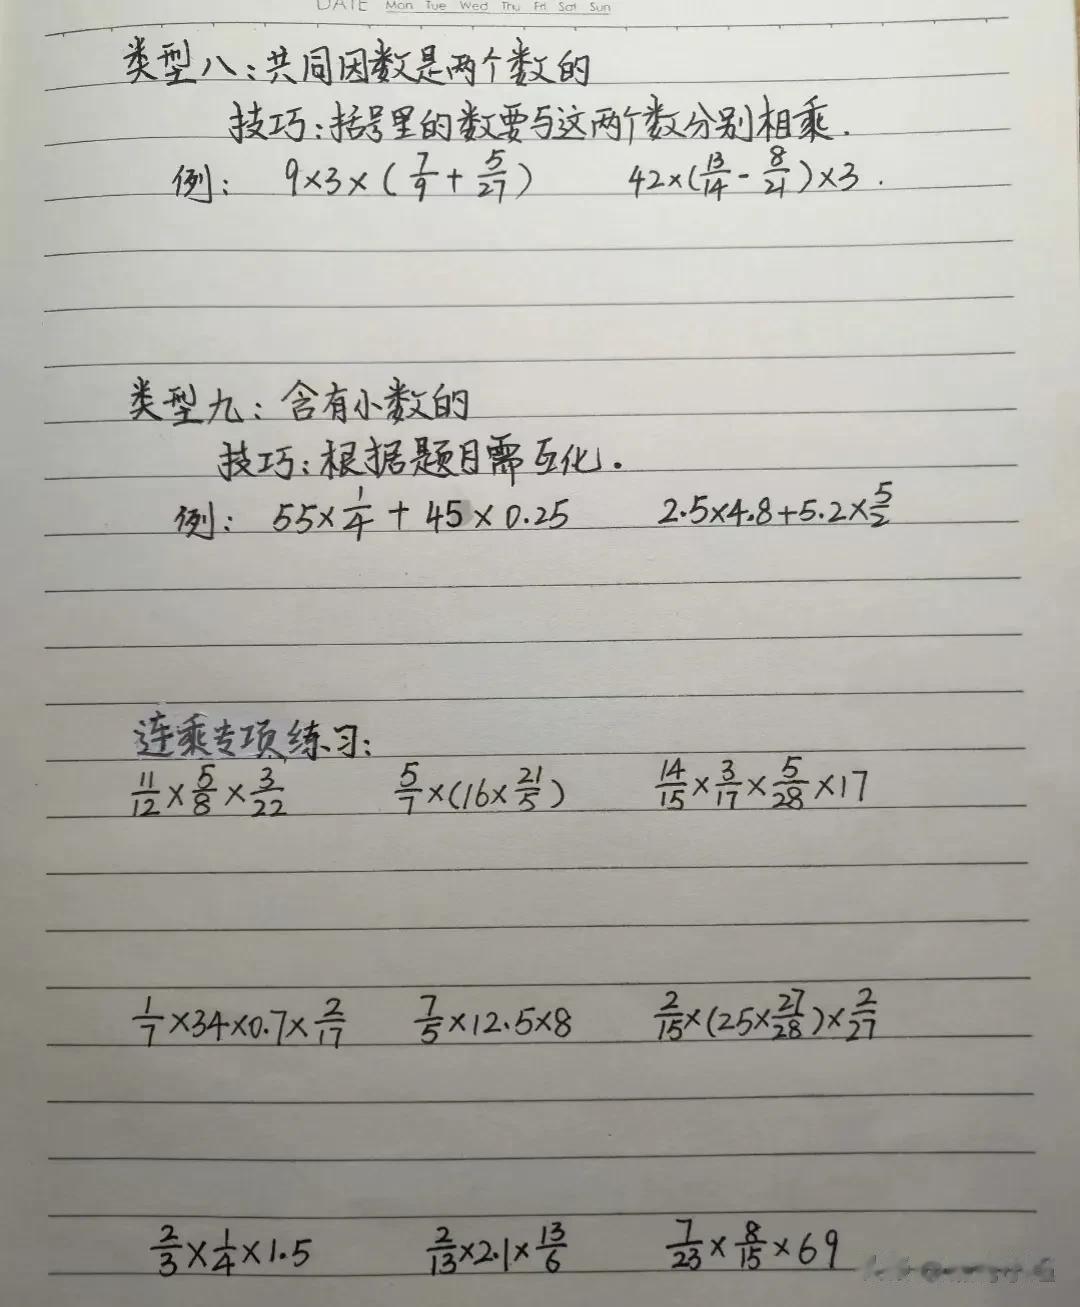 DATE Mon Tue Wed Thu Fri Sat Sun
类型八：共同因数是两个数的
技巧：括号里的数要与这两个数分别相乘.
例： 9×3×(7/9+5/27) 42×(13/14-8/21)×3.
类型九：含有小数的
技巧：根据题目需互化.
例： 55×1/4+45×0.25 2.5×4.8+5.2×5/2
连乘专项练习：
11/12×5/8×3/22 5/7×(16×21/5) 14/15×3/17×5/28×17
1/7×34×0.7×2/17 7/5×12.5×8 2/15×(25×27/28)×2/27
2/3×1/4×1.5 2/13×2.1×13/6 7/23×8/15×69